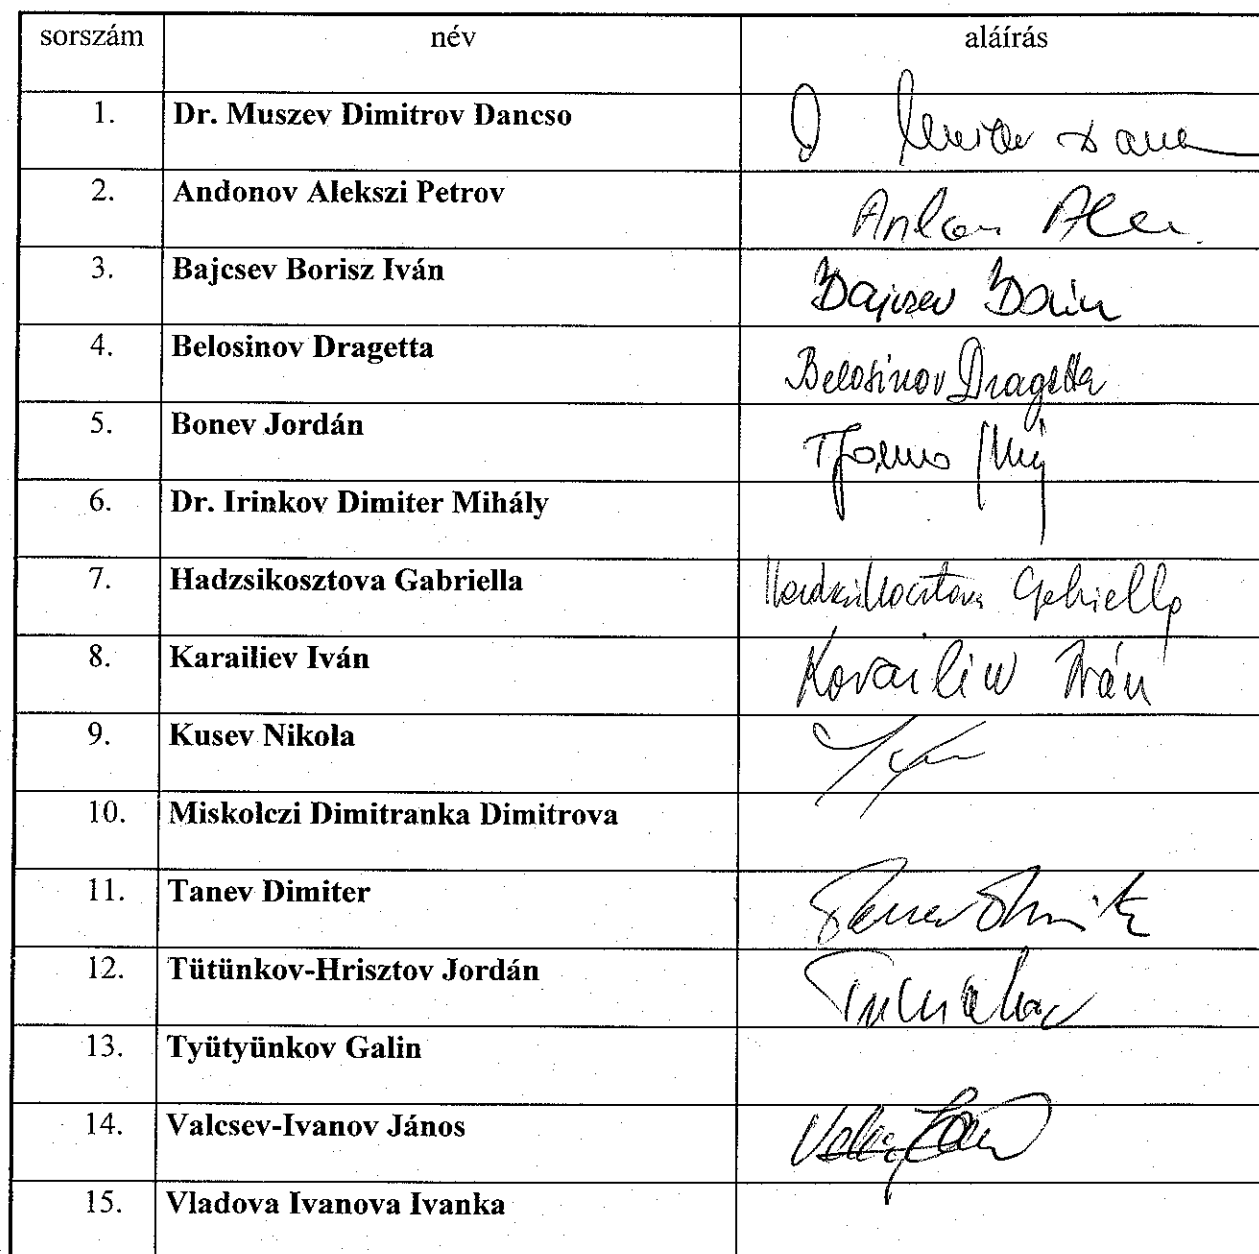 sorszám név aláírás
1. Dr. Muszev Dimitrov Dancso
2. Andonov Alekszi Petrov
3. Bajcsev Borisz Iván Bajcsev
4. Belosinov Dragetta Belosinov Dragetta
5. Bonev Jordán
6. Dr. Irinkov Dimiter Mihály
7. Hadzsikosztova Gabriella Gabriella
8. Karailiev Iván Karailiev Iván
9. Kusev Nikola
10. Miskolczi Dimitranka Dimitrova
11. Tanev Dimiter
12. Tütünkov-Hrisztov Jordán
13. Tyütyünkov Galin
14. Valcsev-Ivanov János
15. Vladova Ivanova Ivanka